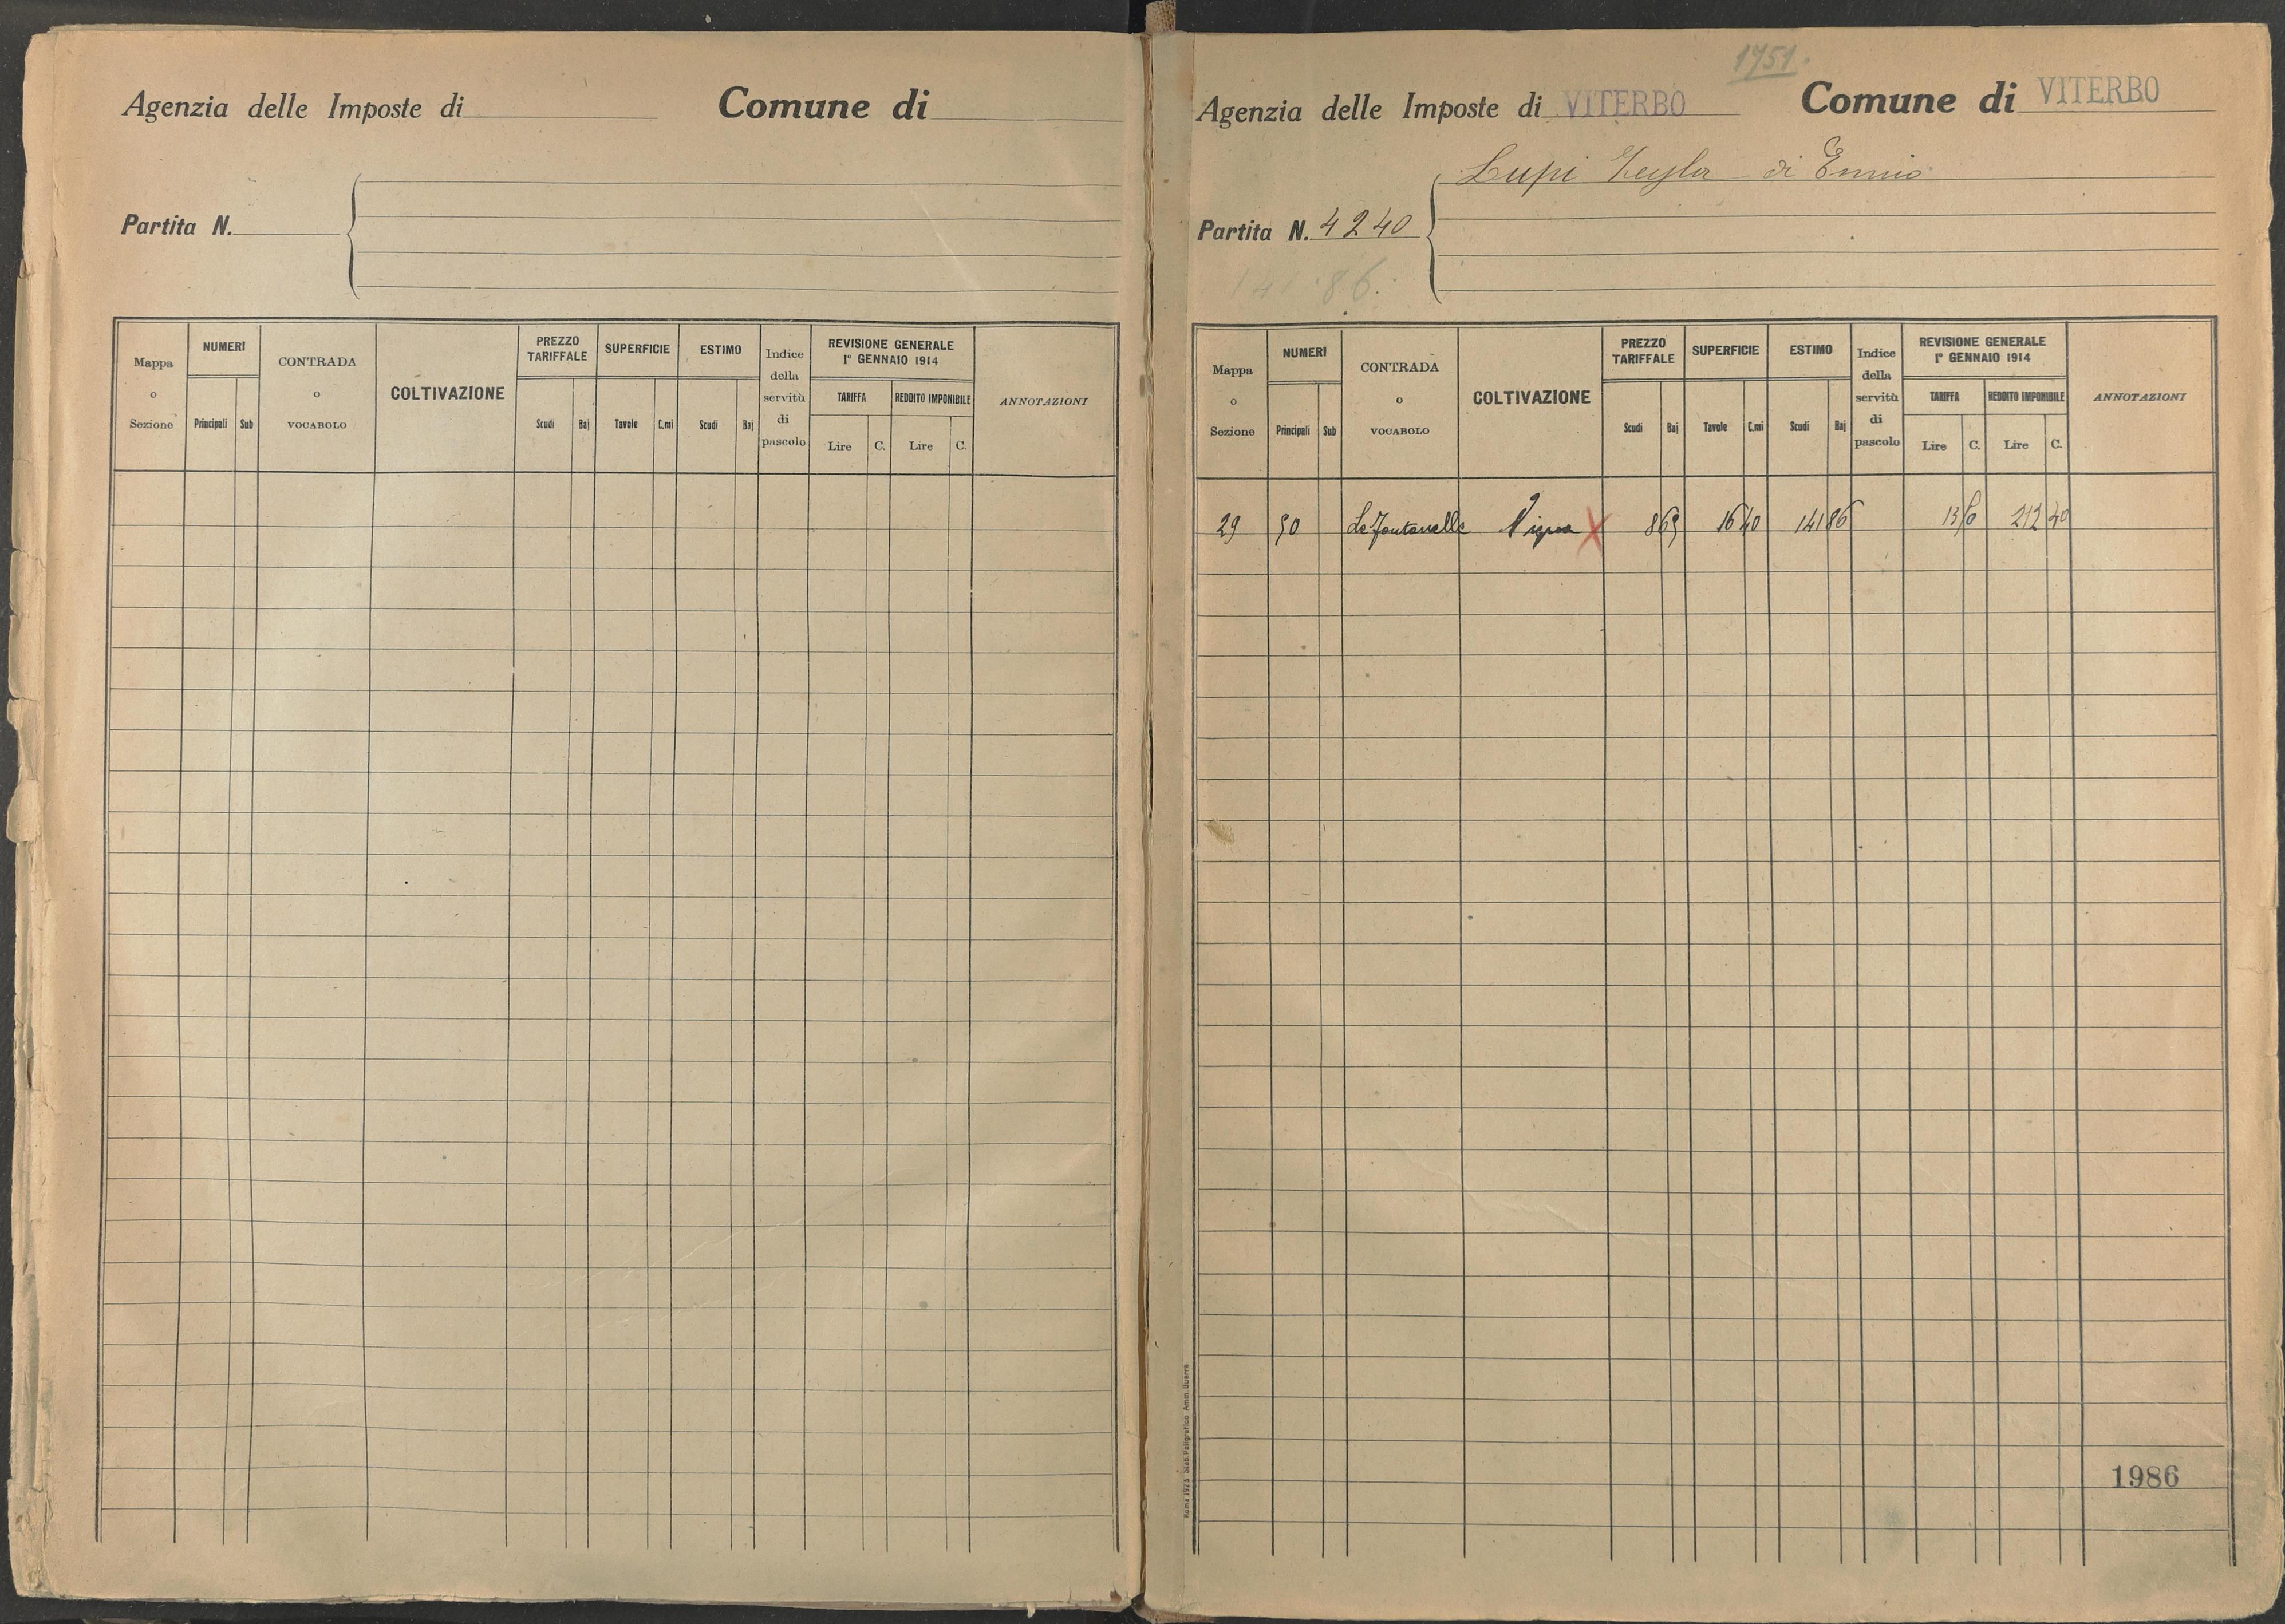 Agenzia delle Imposte di
Comune di
Partita N.
Mappa o Sezione
NUMERI
Principali
Sub
CONTRADA o VOCABOLO
COLTIVAZIONE
PREZZO TARIFFALE
Scudi
Baj
SUPERFICIE
Tavole
C.mi
ESTIMO
Scudi
Baj
Indice della servitù di pascolo
REVISIONE GENERALE
1° GENNAIO 1914
TARIFFA
REDDITO IMPONIBILE
Lire
C.
Lire
C.
ANNOTAZIONI
1751.
Agenzia delle Imposte di VITERBO
Comune di VITERBO
Lupi di Ennio
Partita N. 4240
141.86.
Mappa o Sezione
NUMERI
Principali
Sub
CONTRADA o VOCABOLO
COLTIVAZIONE
PREZZO TARIFFALE
Scudi
Baj
SUPERFICIE
Tavole
C.mi
ESTIMO
Scudi
Baj
Indice della servitù di pascolo
REVISIONE GENERALE
1° GENNAIO 1914
TARIFFA
REDDITO IMPONIBILE
Lire
C.
Lire
C.
ANNOTAZIONI
29 90 Le Fontanelle Vigna X 8 65 16 40 141 86 212 40
1986
Roma 1923 Stab. Poligrafico Amm. Guerra